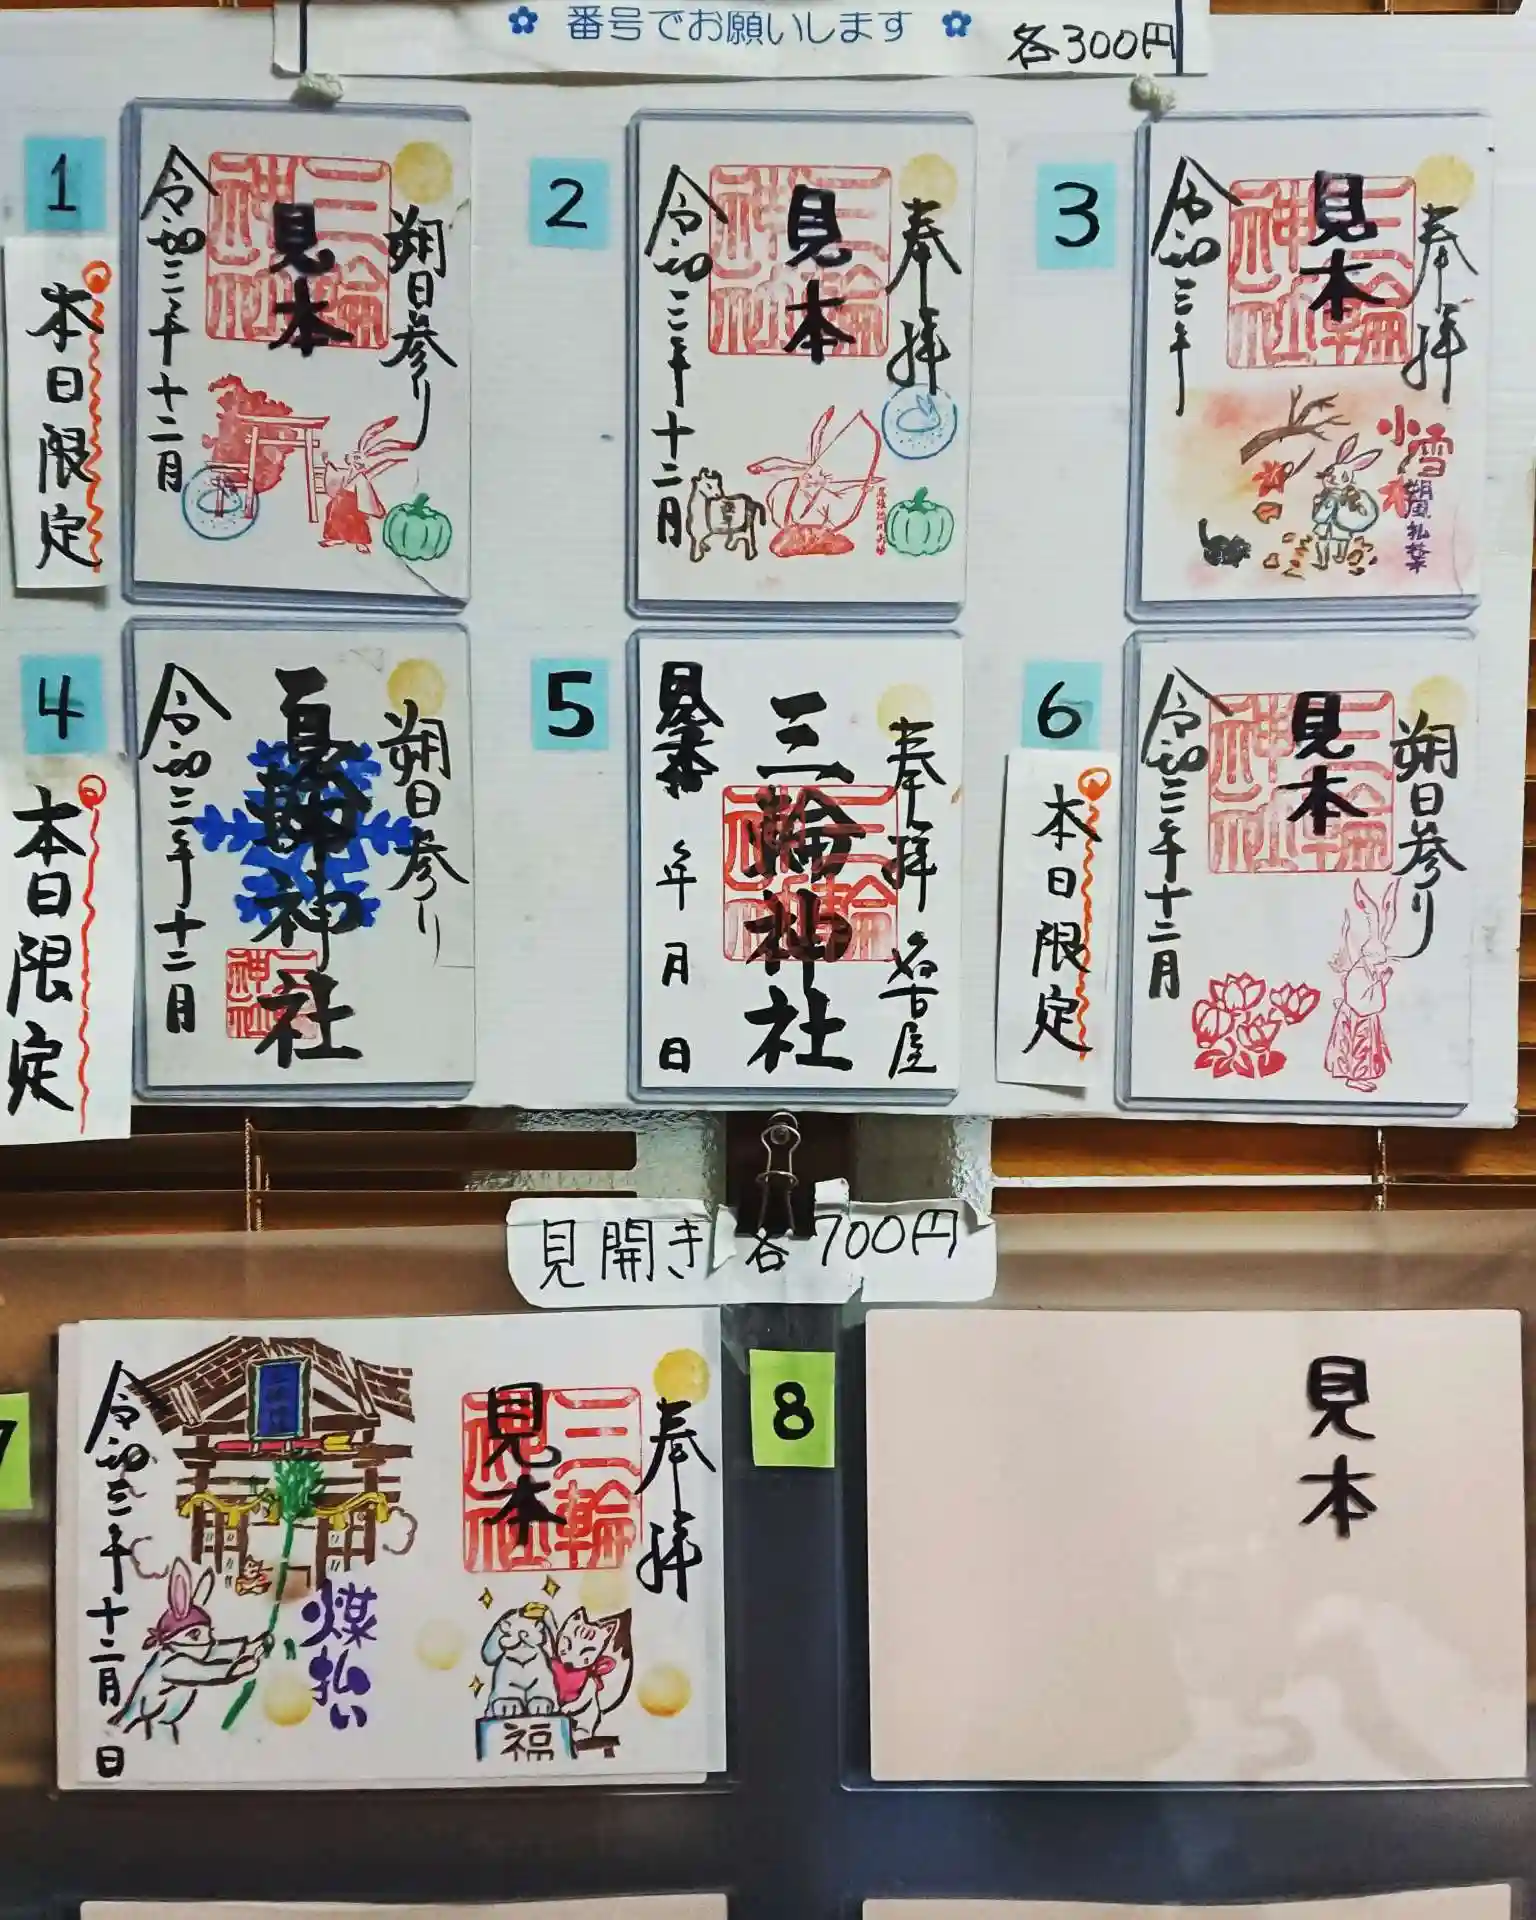 番号でお願いします
各300円
1
本日限定
朔日参り
三輪神社
見本
令和三年十二月
2
奉拝
三輪神社
見本
令和三年十二月
3
奉拝
三輪神社
見本
小雪
朔風払葉
令和三年
4
本日限定
朔日参り
三輪神社
見本
令和三年十二月
5
奉拝 名古屋
三輪神社
見本
年月日
6
本日限定
朔日参り
三輪神社
見本
令和三年十二月
見開き 各700円
7
奉拝
三輪神社
見本
福
煤払い
令和三年十二月 日
8
見本